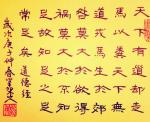 天下有道却走
馬以糞天下無
道戎馬生於郊
禍莫大於不知
足咎莫大於欲
得故知足之足
常足矣 道德經
歲次庚子仲春